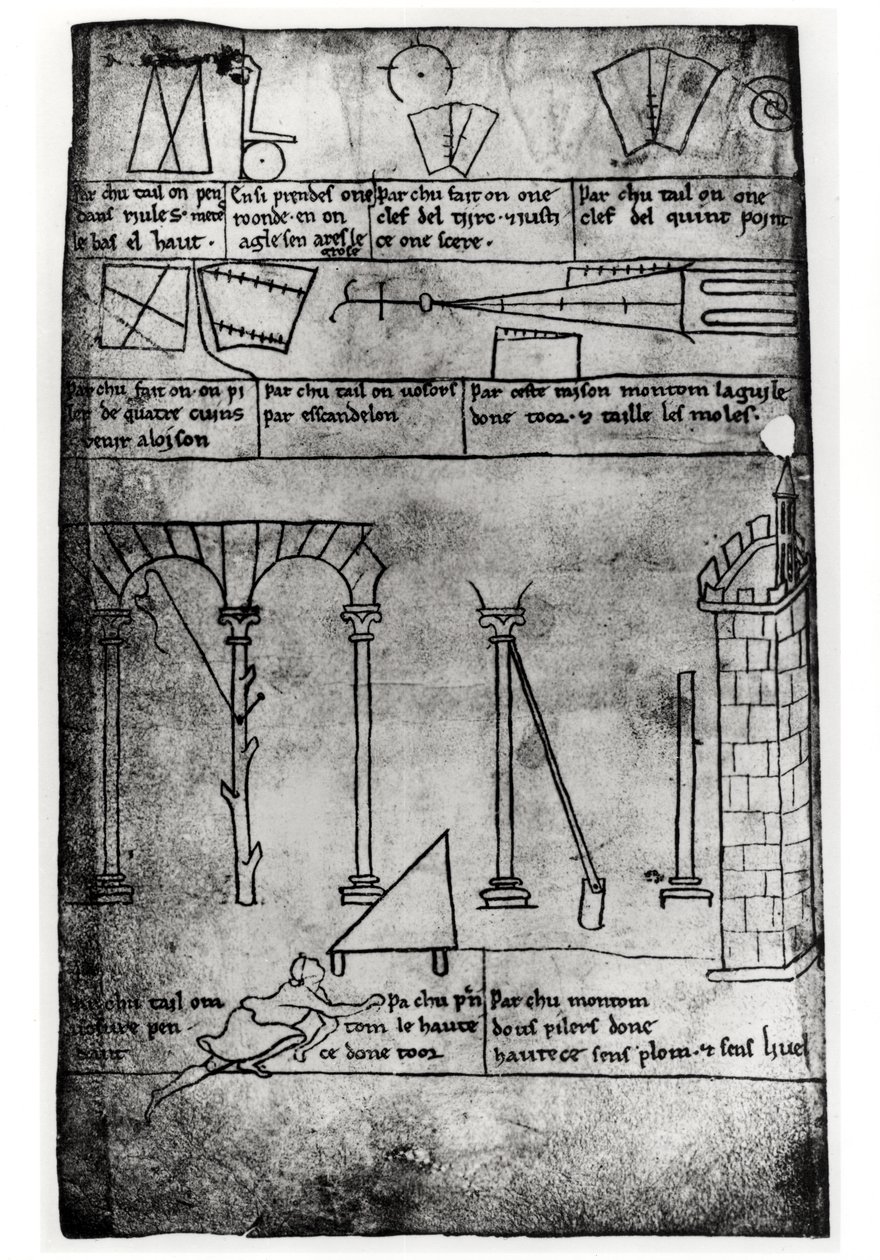 par chu tail on pen
dans riules s' mete
le bas el haut .
Ensi prendes one
roonde · en on
agle sen ares le
grose
par chu fait on one
clef del tijrc · ⁊ iusti
ce one scere .
par chu tail on one
clef del quint point
par chu fait on · on pi
ler de quatre cuins
venir a loison
par chu tail on vosors
par esscandelon
par ceste raison montom la guile
done toor · ⁊ taille les moles .
chu tail om
vosure pen
dant
pa chu pñ
tom le haute
ce done toor
par chu montom
dous pilers done
hautece sens plom · ⁊ sens livel